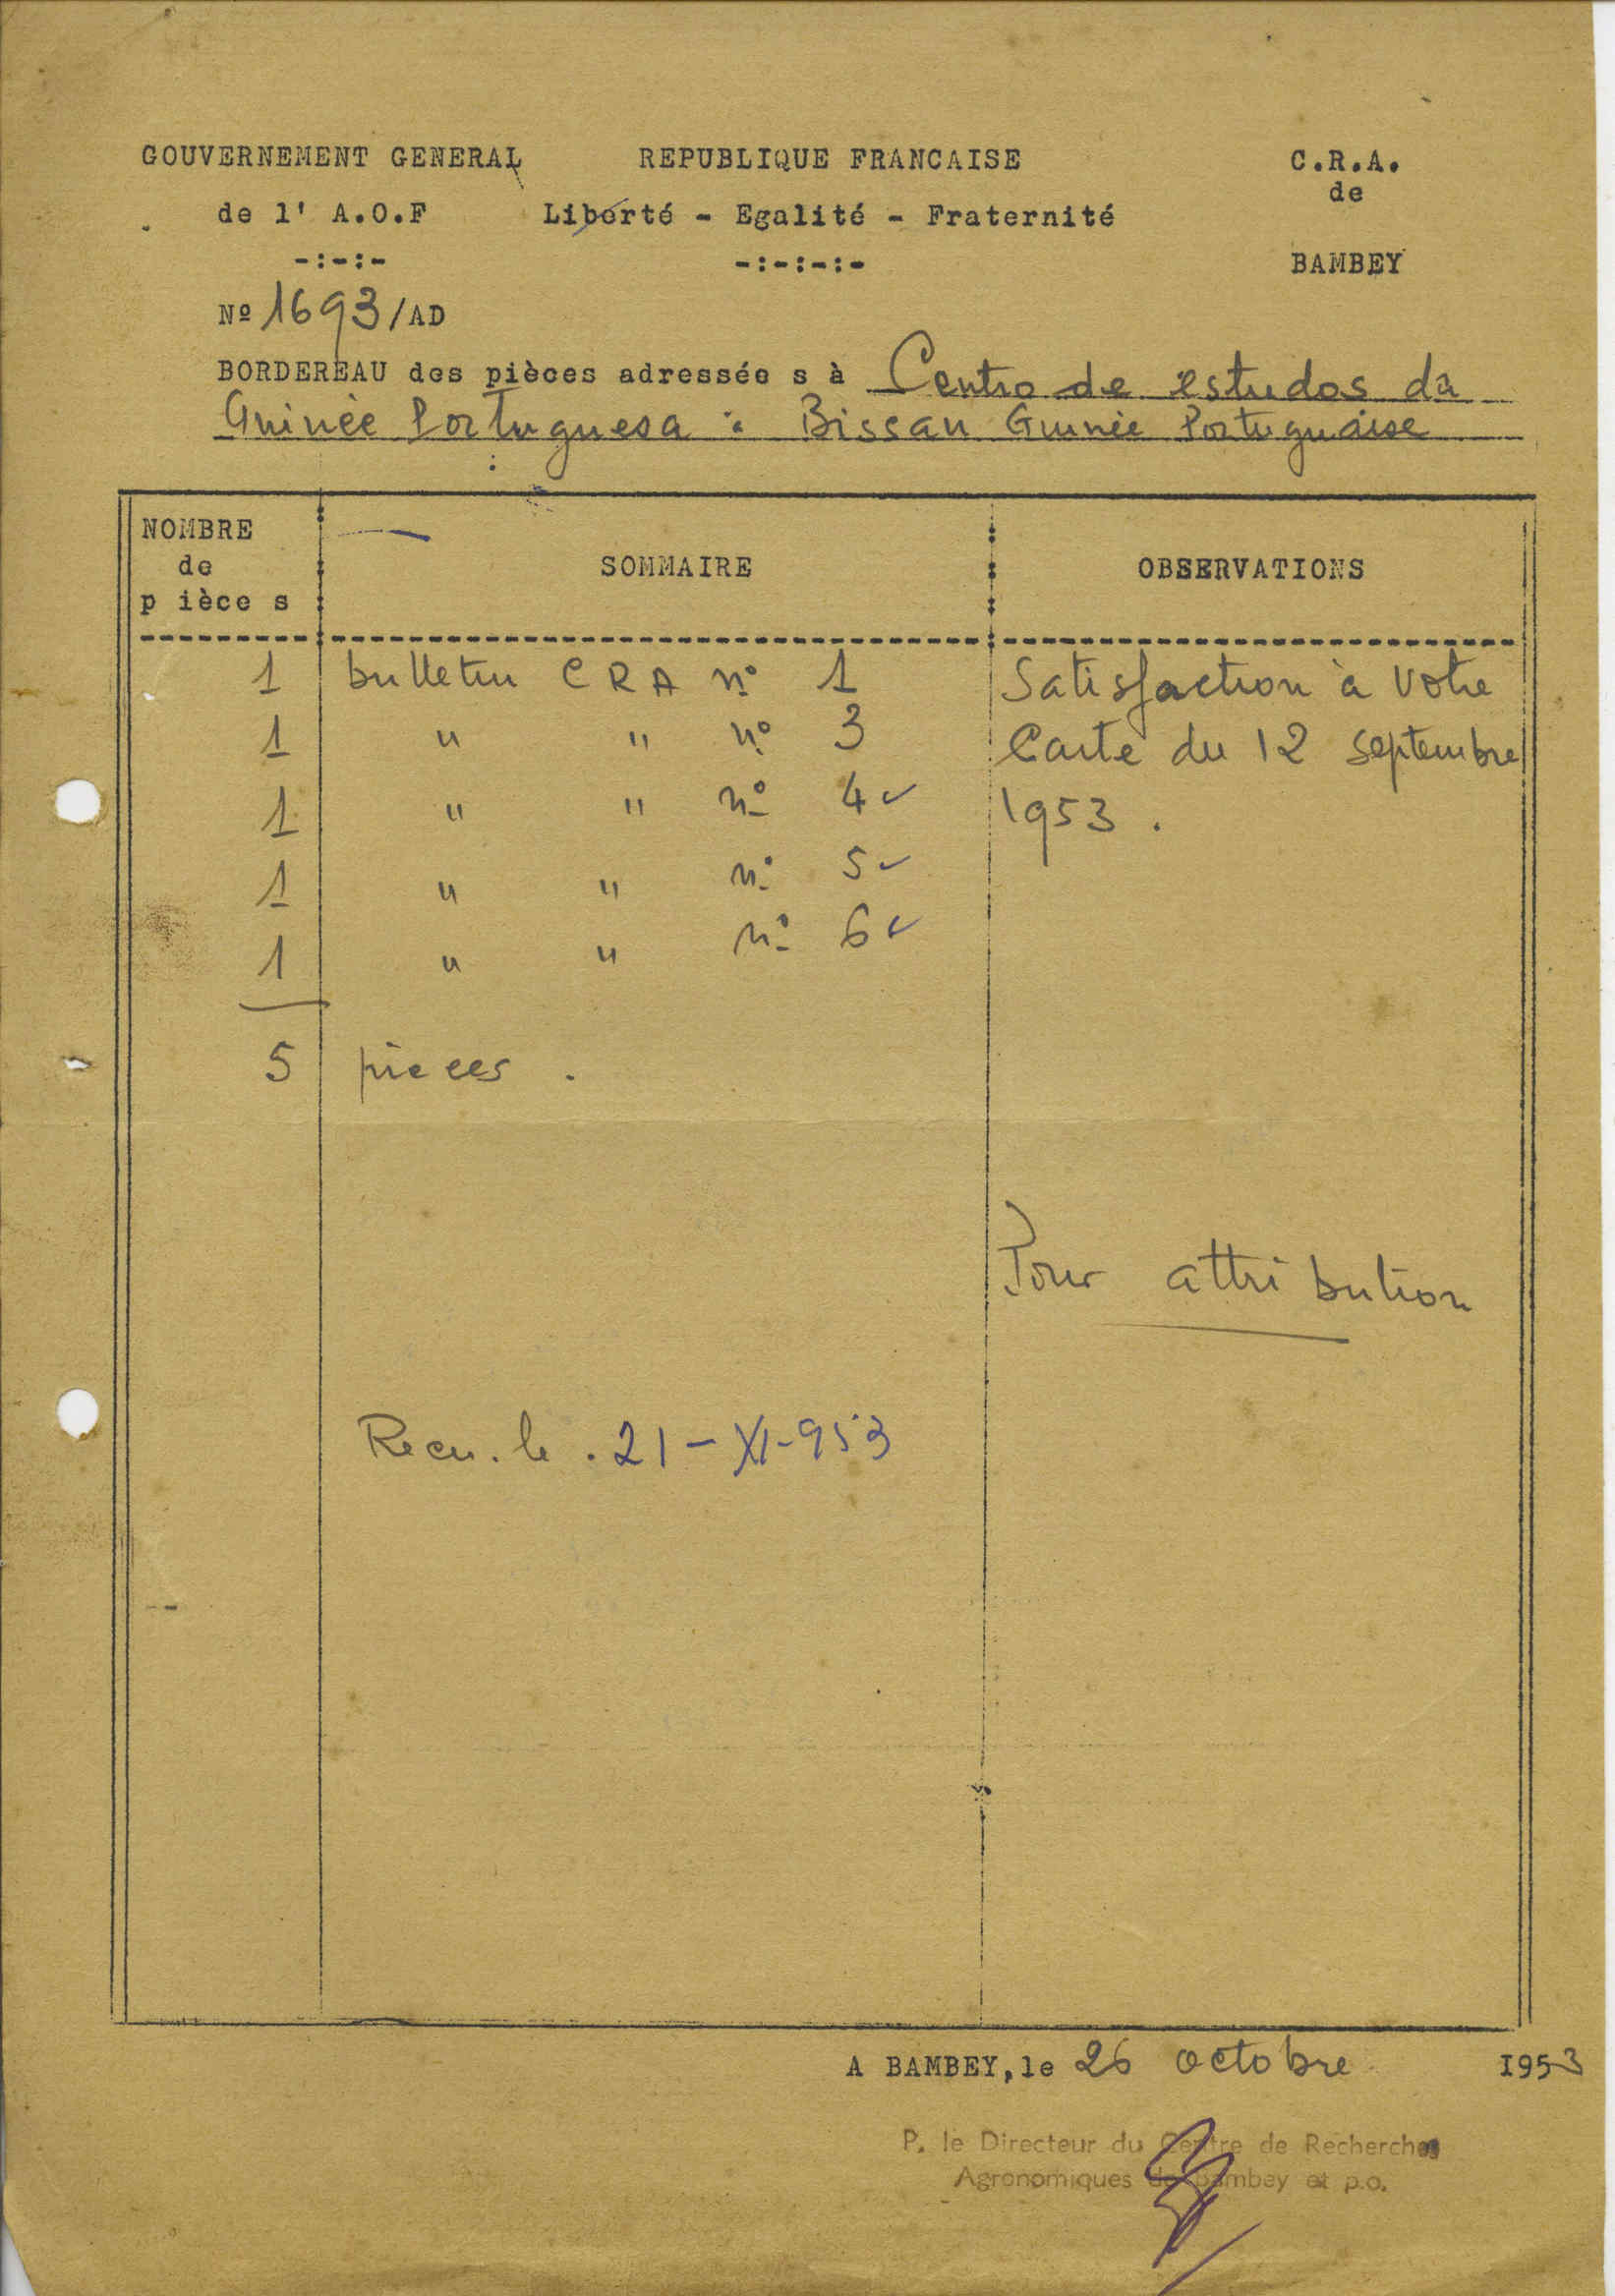 GOUVERNEMENT GENERAL
de l' A.O.F
-:-:-
Nº 1693/AD
REPUBLIQUE FRANCAISE
Liberté - Egalité - Fraternité
-:-:-:-
C.R.A.
de
BAMBEY
BORDEREAU des pièces adressée s à Centro de estudos da
Guinée Portuguesa : Bissau Guinée Portugaise
NOMBRE
de
p ièce s
SOMMAIRE
OBSERVATIONS
1 bulletin C R A nº 1
1 " " nº 3
1 " " nº 4 ✓
1 " " nº 5 ✓
1 " " nº 6 ✓
5 pieces .
Satisfaction à votre
Carte du 12 septembre
1953 .
Pour attribution
Recu . le . 21 - XI - 953
A BAMBEY, le 26 octobre 1953
P. le Directeur du Centre de Recherches
Agronomiques de Bambey et p.o.